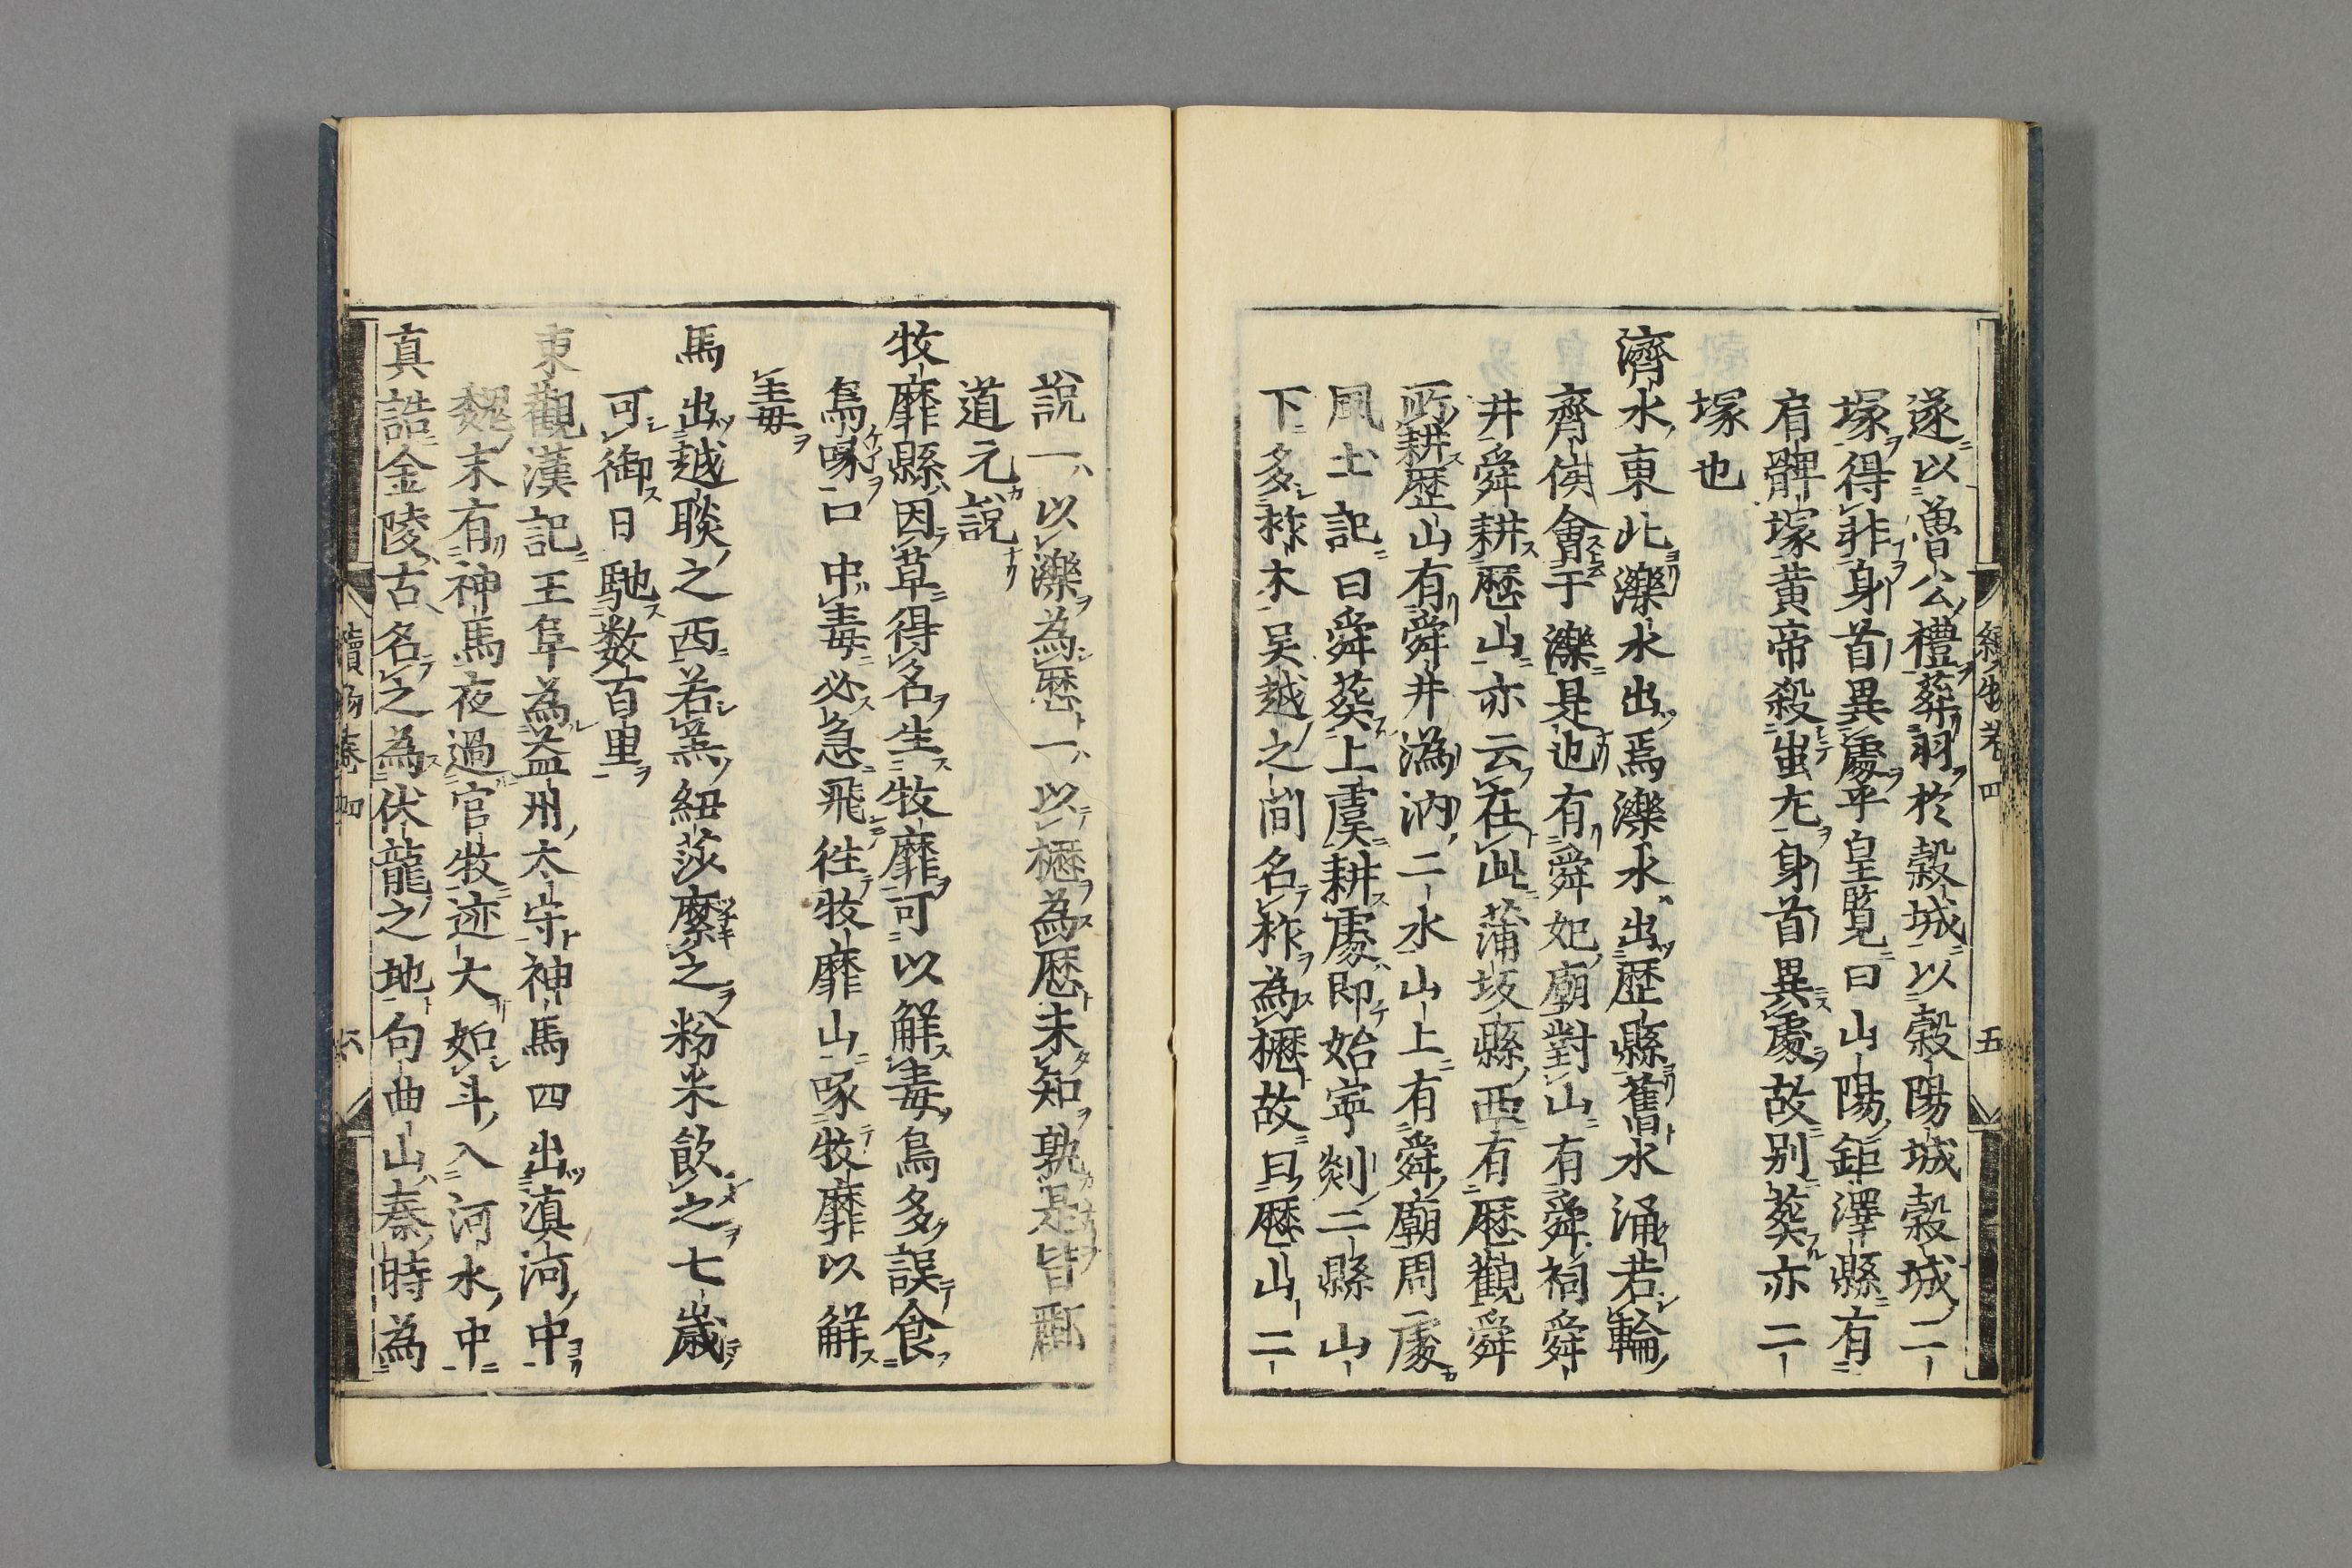 遂以魯公禮葬羽於榖城以榖陽城榖城二
塚得非身首異處乎皇覧曰山陽鉅澤縣有
肩髀塚黄帝殺蚩尤身首異處故別葬亦二
塚也
濟水東北濼水出焉濼水出歴縣舊水涌若輪
齊侯會于濼是也有舜妃廟對山有舜祠舜
井舜耕歴山亦云在此蒲坂縣西有歴觀舜
所耕歴山有舜井潙汭二水山上有舜廟周處
風土記曰舜葬上虞耕處即始寧剡二縣山
下多柞木吴越之間名柞為櫪故曰歴山二
續博物卷四 五
說一以濼為歴一以櫪為歴未知孰是皆酈
道元說
牧靡縣因草得名生牧靡可以解毒烏多誤食
烏喙口中毒必急飛徃牧靡山啄牧靡以解
毒
馬出越睒之西若羔紐莎縻之粉米飲之七歳
可御日馳数百里
東觀漢記王阜為益州太守神馬四出滇河中
魏末有神馬夜過官牧迹大如斗入河水中
真誥金陵古名之為伏龍之地句曲山秦時為
續物卷四 六